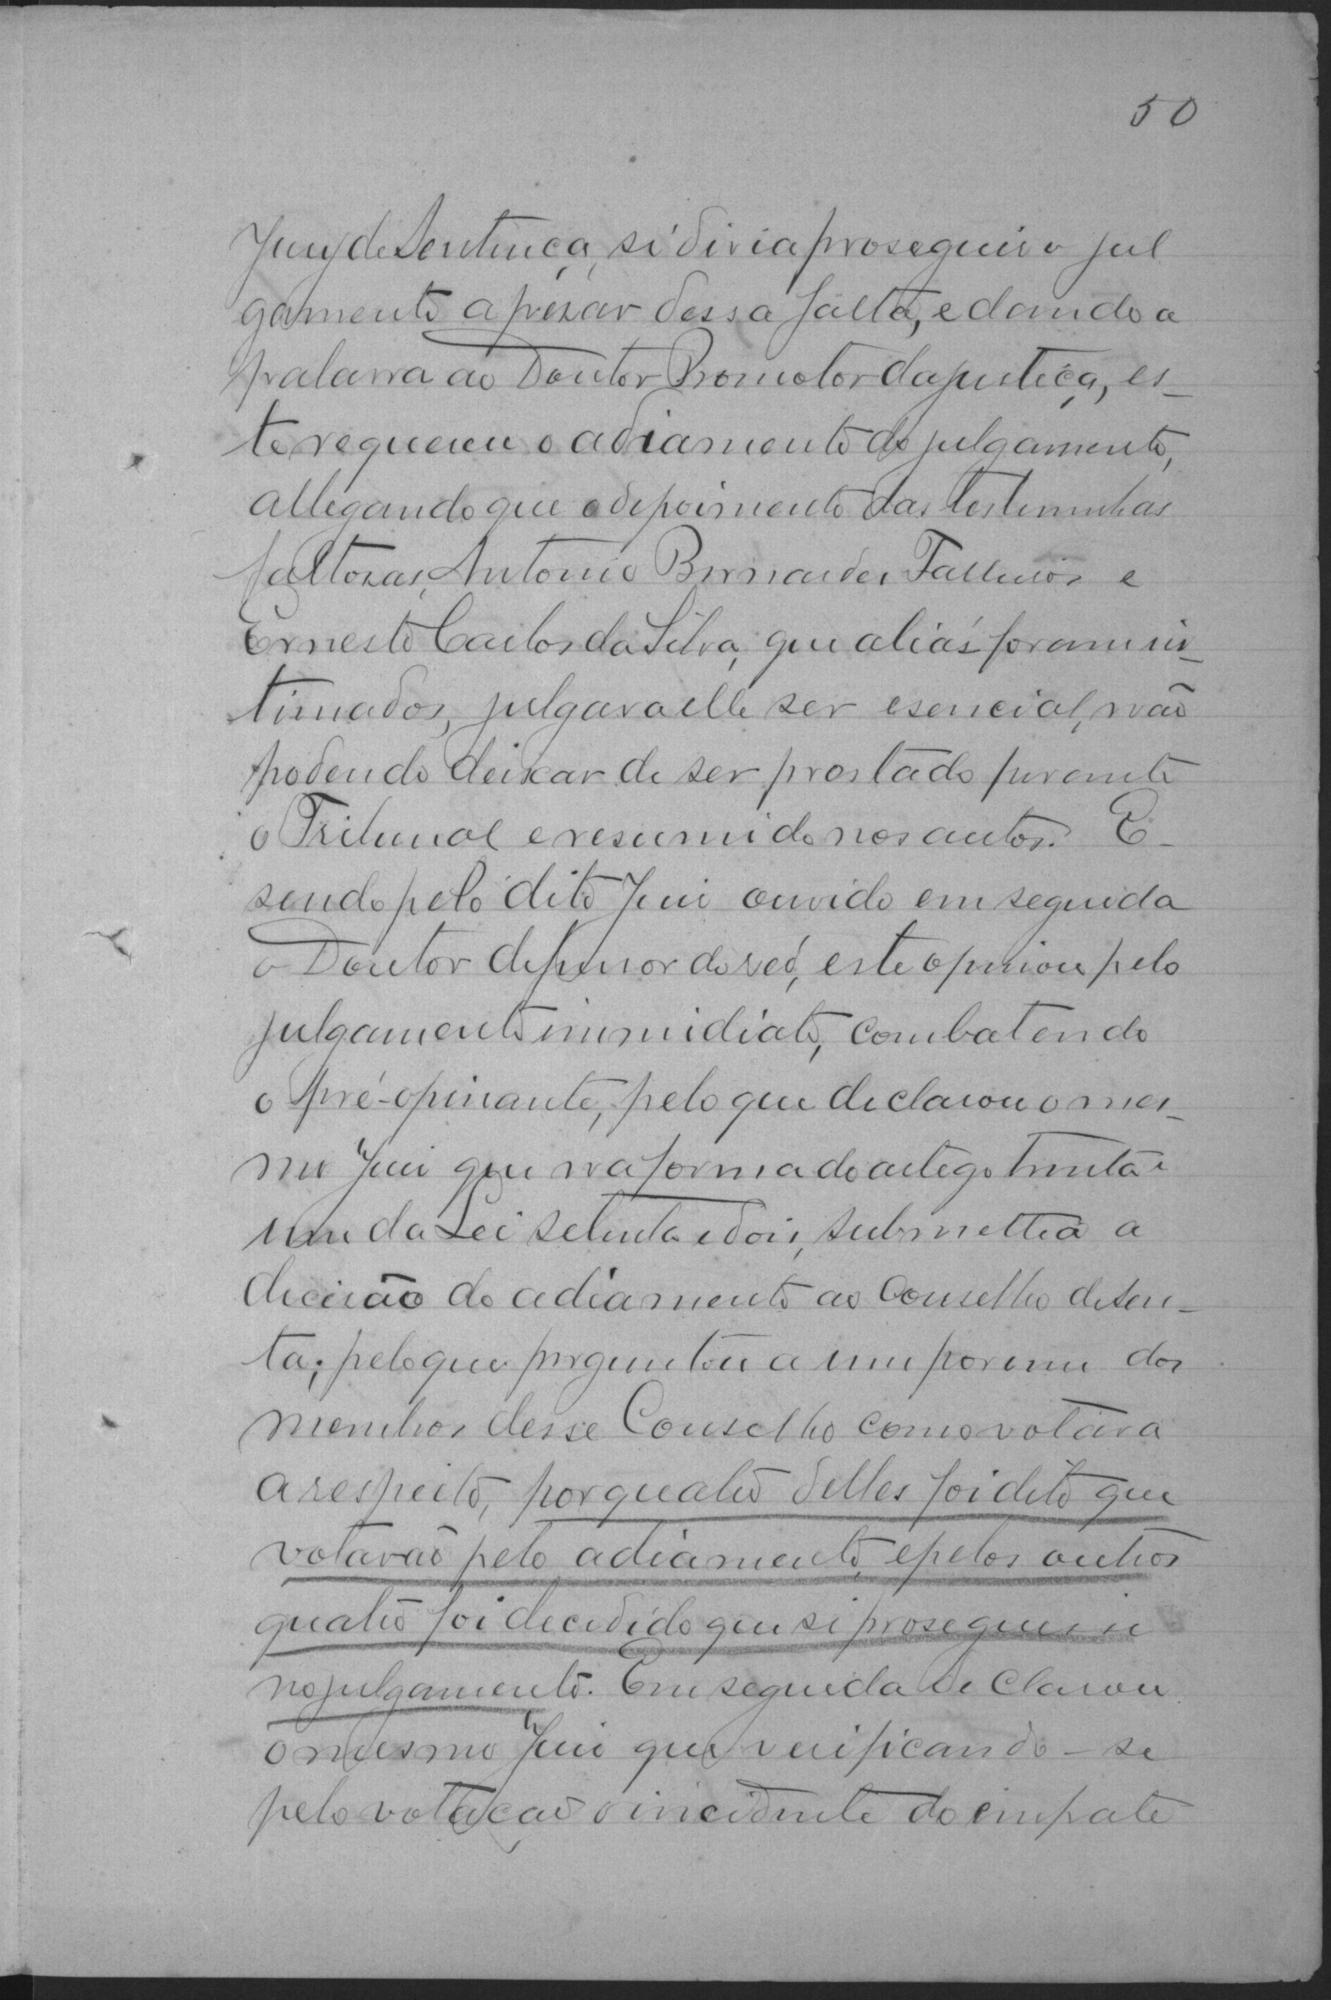 50
Jury de Sentença, si divia proseguir o jul
gamento apezar dessa falta, e dando a
palavra ao Doutor Promotor da justiça, es-
te requereu o adiamento do julgamento,
allegando que o depoimento das testemunhas
faltosas, Antonio Bernardes e
Ernesto Carlos da Silva, que aliás foram in-
timados, julgava elle ser esencial, não
podendo deixar de ser prestado perante
o Tribunal e resumido nos autos. E
sendo pelo dito Juiz ouvido em seguida
o Doutor defensor do reó, este opiniou pelo
julgamento immidiato, combatendo
o pré-opinante, pelo que declarou o mes-
mo Juiz que na forma do artego trinta e
um da Lei setenta e dois, submettia a
decisão do adiamento ao Conselho de sen-
ta; pelo que perguntou a um por um dos
membros desse Conselho como votava
a respeito, por quatro delles foi dito que
votavão pelo adiamento, e pelos outros
quatro foi decidido que si proseguisse
no julgamento. Em seguida declarou
o mesmo Juiz que verificando-se
pelo votação o incidente do empate